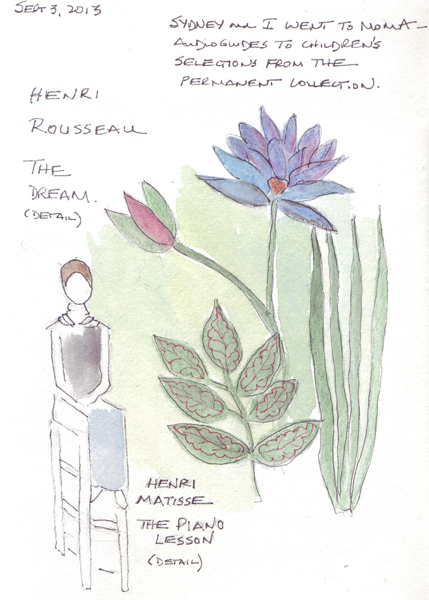 SEPT 3, 2013
SYDNEY and I WENT TO MOMA -
AUDIOGUIDES TO CHILDREN'S
SELECTIONS FROM THE
PERMANENT COLLECTION.
HENRI
ROUSSEAU
THE
DREAM.
(DETAIL)
HENRI
MATISSE
THE PIANO
LESSON
(DETAIL)